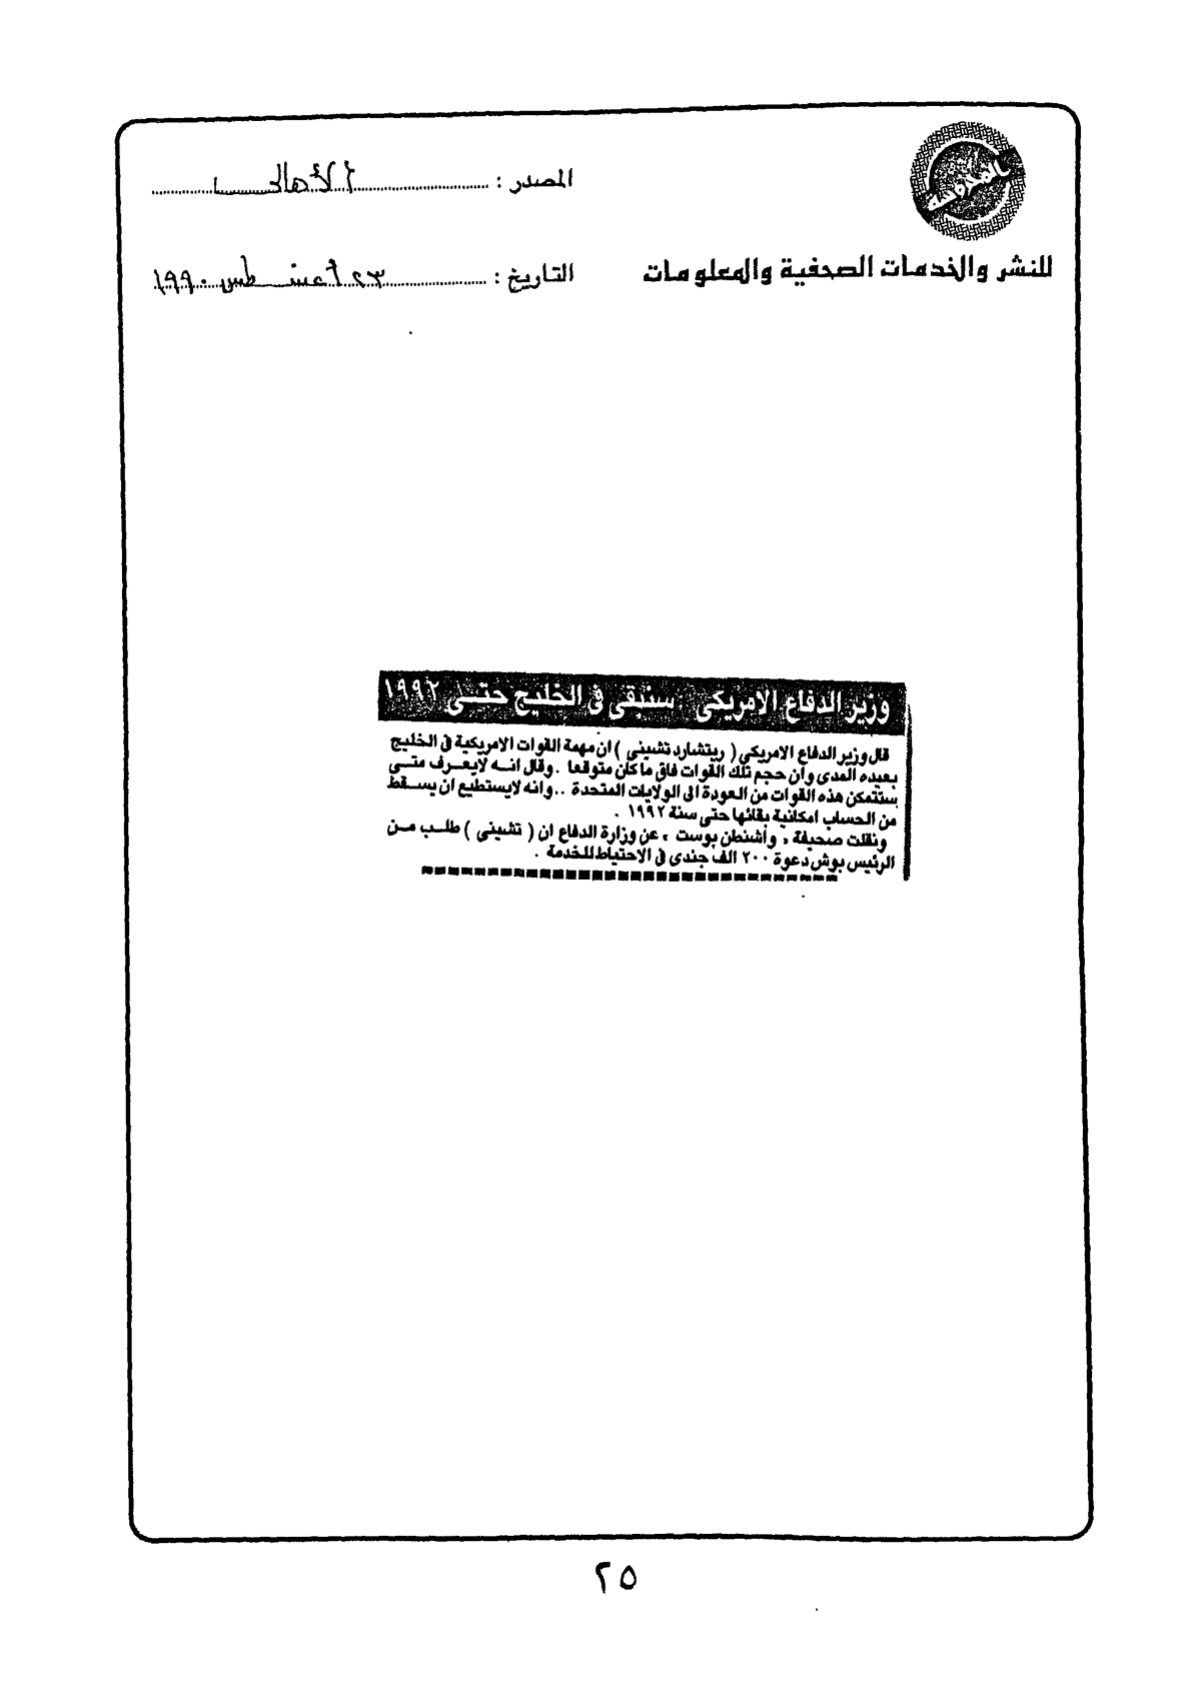 المصدر : الأهالى
للنشر والخدمات الصحفية والمعلومات
التاريخ : ٢٣ أغسطس ١٩٩٠
وزير الدفاع الامريكى سنبقى فى الخليج حتى ١٩٩٢
قال وزير الدفاع الامريكى ( ريتشارد تشينى ) ان مهمة القوات الامريكية فى الخليج
بعيده المدى وان حجم تلك القوات فاق ما كان متوقعا . وقال انه لايعرف متى
ستتمكن هذه القوات من العودة الى الولايات المتحدة .. وانه لايستطيع ان يسقط
من الحساب امكانية بقائها حتى سنة ١٩٩٢ .
ونقلت صحيفة « واشنطن بوست » عن وزارة الدفاع ان ( تشينى ) طلب من
الرئيس بوش دعوة ٢٠٠ الف جندى فى الاحتياط للخدمة .
٢٥